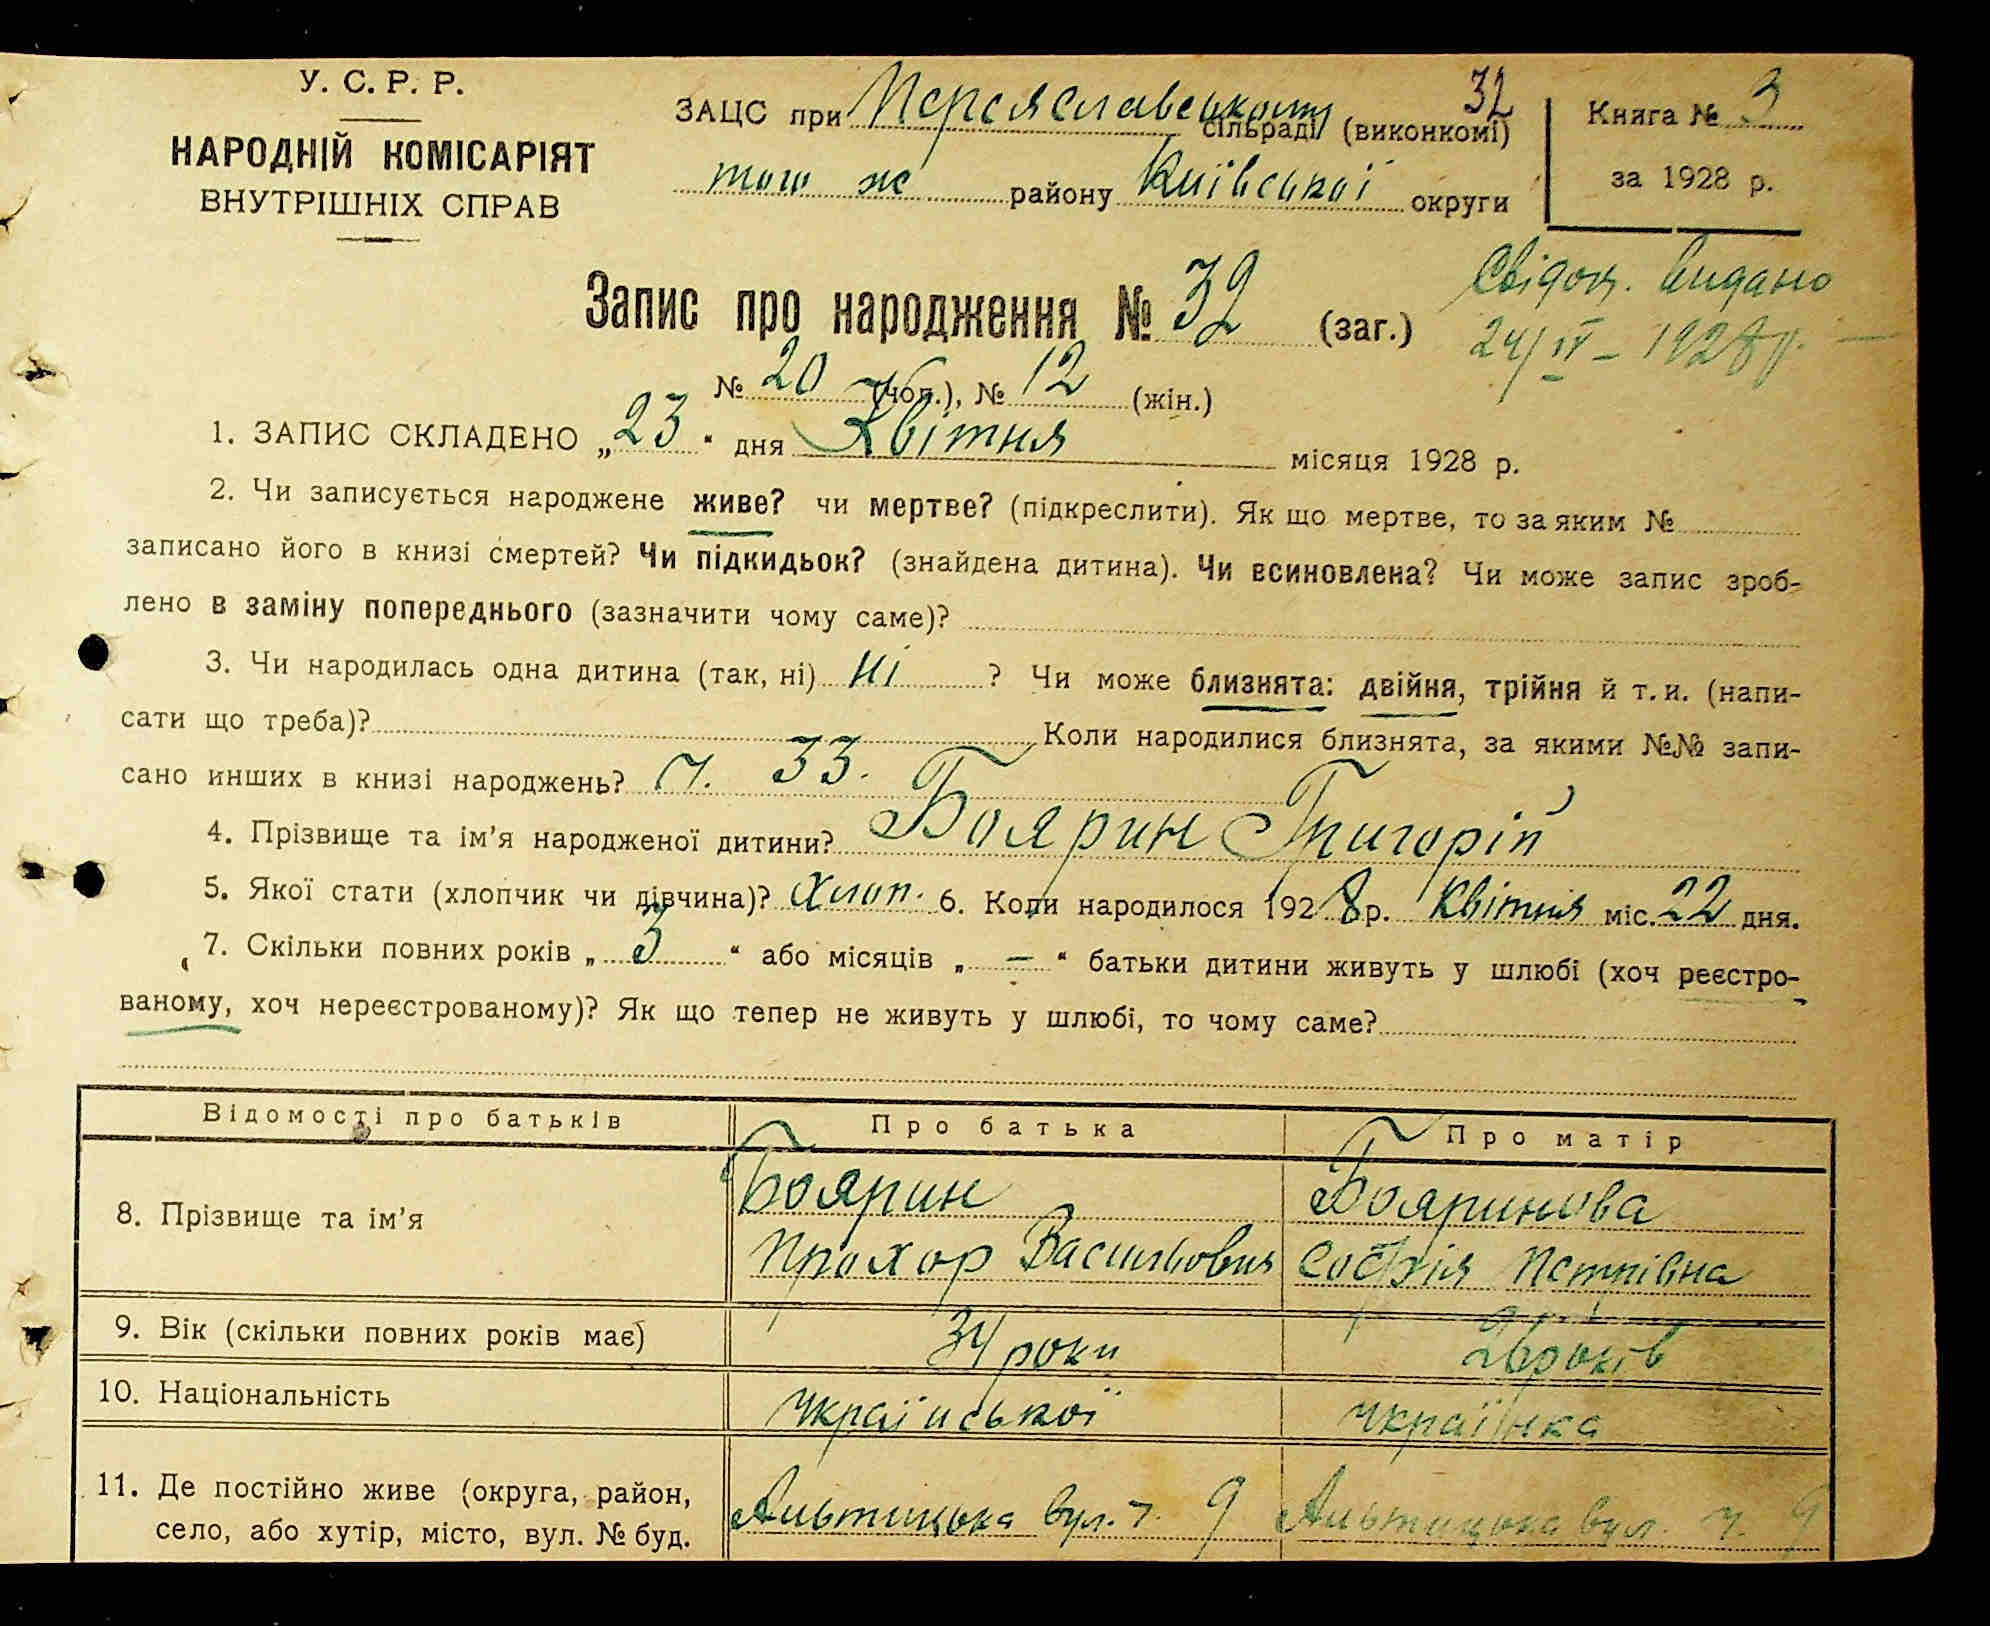 У. С. Р. Р.
НАРОДНІЙ КОМІСАРІЯТ
ВНУТРІШНІХ СПРАВ
32
ЗАЦС при Переяславському сільраді (виконкомі)
того ж району Київської округи
Книга № 3
за 1928 р.
Запис про народження № 32 (заг.)
Свідоц. видано
24/IV – 1928 р. —
№ 20 (чол.), № 12 (жін.)
1. ЗАПИС СКЛАДЕНО „23“ дня Квітня місяця 1928 р.
2. Чи записується народжене живе? чи мертве? (підкреслити). Як що мертве, то за яким №
записано його в книзі смертей? Чи підкидьок? (знайдена дитина). Чи всиновлена? Чи може запис зроб-
лено в заміну попереднього (зазначити чому саме)?
3. Чи народилась одна дитина (так, ні) ні ? Чи може близнята: двійня, трійня й т. и. (напи-
сати що треба)? Коли народилися близнята, за якими №№ запи-
сано инших в книзі народжень? ч. 33.
4. Прізвище та ім’я народженої дитини? Боярин Григорій
5. Якої стати (хлопчик чи дівчина)? Хлоп. 6. Коли народилося 1928 р. Квітня міс. 22 дня.
7. Скільки повних років „3“ або місяців „–“ батьки дитини живуть у шлюбі (хоч реєстро-
ваному, хоч нереєстрованому)? Як що тепер не живуть у шлюбі, то чому саме?
Відомості про батьків Про батька Про матір
8. Прізвище та ім’я Боярин Бояринова
Прохор Васильович Софія Петрівна
9. Вік (скільки повних років має) 34 роки 26 років
10. Національність української українка
11. Де постійно живе (округа, район,
село, або хутір, місто, вул. № буд. Альтицька вул. ч. 9 Альтицька вул. ч. 9